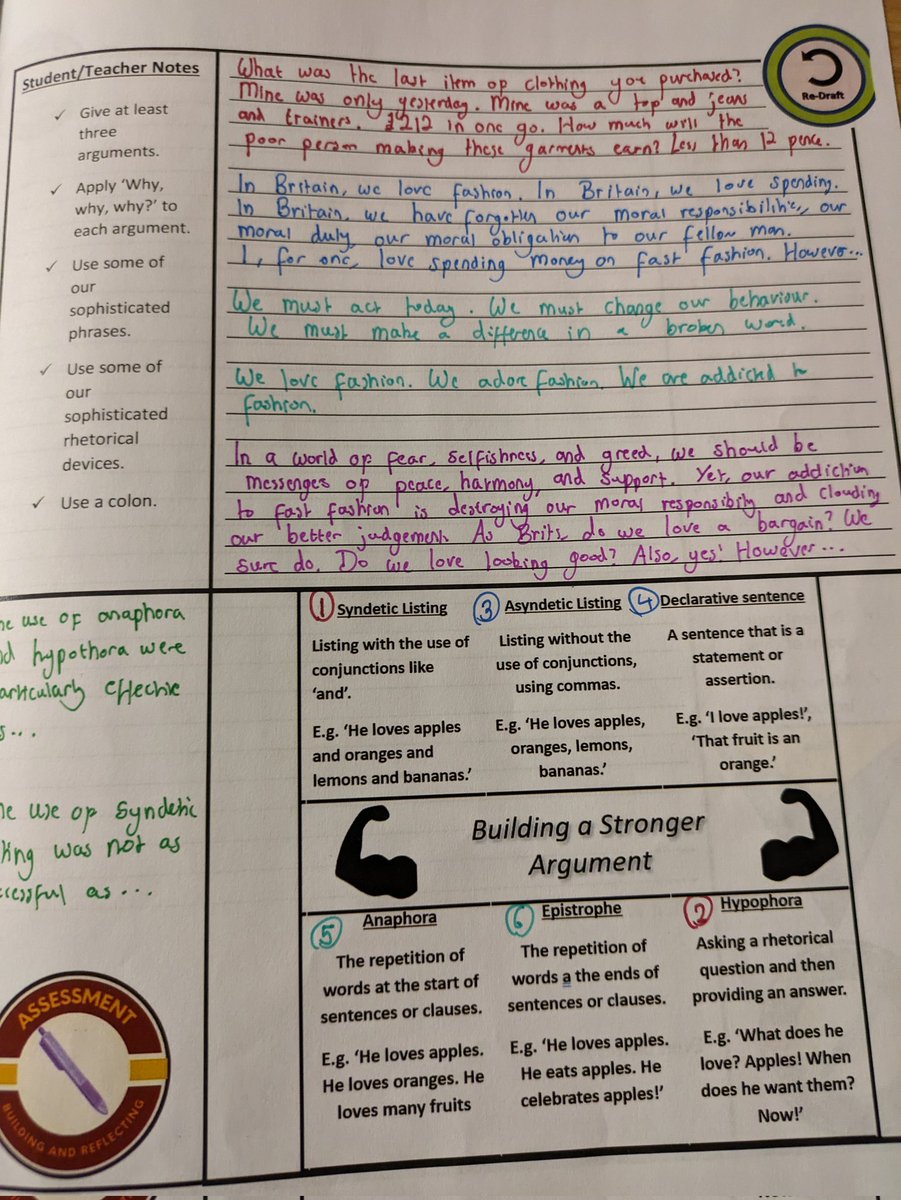 Student/Teacher Notes
✓ Give at least
three
arguments.
✓ Apply ‘Why,
why, why?’ to
each argument.
✓ Use some of
our
sophisticated
phrases.
✓ Use some of
our
sophisticated
rhetorical
devices.
✓ Use a colon.
Re-Draft
What was the last item of clothing you purchased?
Mine was only yesterday. Mine was a top and jeans
and trainers. £212 in one go. How much will the
poor person making these garments earn? Less than 12 pence.
In Britain, we love fashion. In Britain, we love spending.
In Britain, we have forgotten our moral responsibilities, our
moral duty, our moral obligation to our fellow man.
I, for one, love spending money on fast fashion. However...
We must act today. We must change our behaviour.
We must make a difference in a broken world.
We love fashion. We adore fashion. We are addicted to
fashion.
In a world of fear, selfishness, and greed, we should be
messenges of peace, harmony, and support. Yet, our addiction
to fast fashion is destroying our moral responsibility and clouding
our better judgement. As Brits, do we love a bargain? We
sure do. Do we love looking good? Also, yes! However...
use of anaphora
hypothora were
effective
...
use of syndetic
was not as
as...
ASSESSMENT
BUILDING AND REFLECTING
1 Syndetic Listing
Listing with the use of
conjunctions like
‘and’.
E.g. ‘He loves apples
and oranges and
lemons and bananas.’
3 Asyndetic Listing
Listing without the
use of conjunctions,
using commas.
E.g. ‘He loves apples,
oranges, lemons,
bananas.’
4 Declarative sentence
A sentence that is a
statement or
assertion.
E.g. ‘I love apples!’,
‘That fruit is an
orange.’
Building a Stronger
Argument
5 Anaphora
The repetition of
words at the start of
sentences or clauses.
E.g. ‘He loves apples.
He loves oranges. He
loves many fruits
6 Epistrophe
The repetition of
words a the ends of
sentences or clauses.
E.g. ‘He loves apples.
He eats apples. He
celebrates apples!’
2 Hypophora
Asking a rhetorical
question and then
providing an answer.
E.g. ‘What does he
love? Apples! When
does he want them?
Now!’